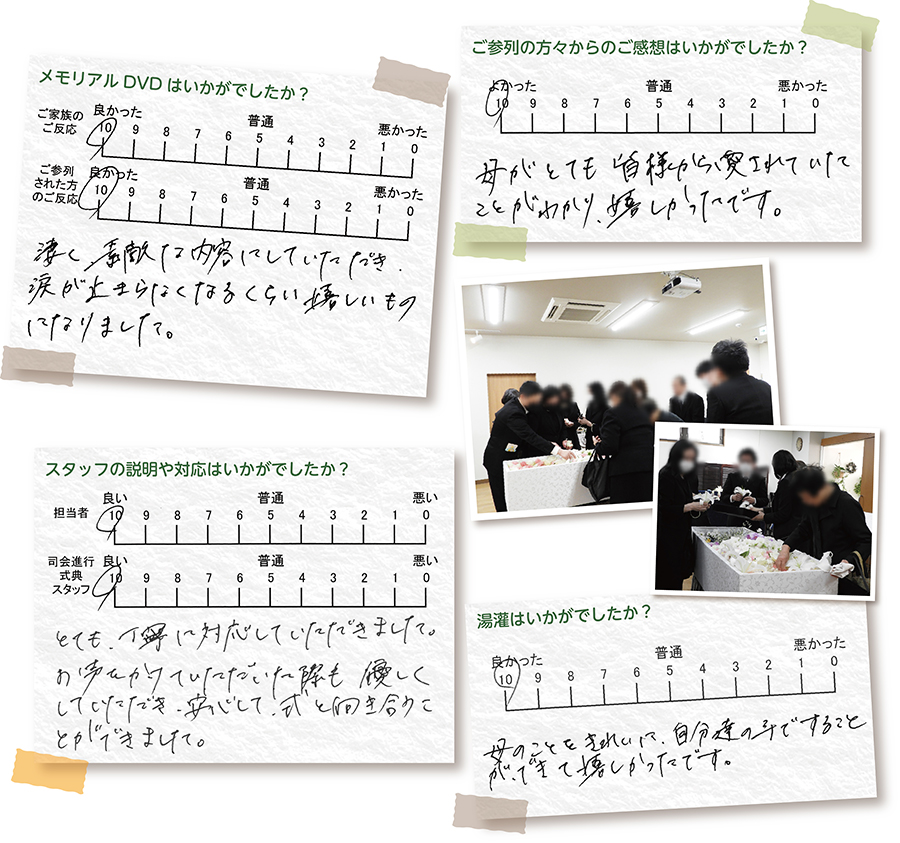 メモリアルDVDはいかがでしたか？
ご家族の
ご反応
良かった 普通 悪かった
10 9 8 7 6 5 4 3 2 1 0
ご参列
された方
のご反応
良かった 普通 悪かった
10 9 8 7 6 5 4 3 2 1 0
凄く素敵な内容にしていただき、
涙が止まらなくなるくらい嬉しいもの
になりました。
ご参列の方々からのご感想はいかがでしたか？
よかった 普通 悪かった
10 9 8 7 6 5 4 3 2 1 0
母がとても皆様から愛されていた
ことがわかり、嬉しかったです。
スタッフの説明や対応はいかがでしたか？
担当者
良い 普通 悪い
10 9 8 7 6 5 4 3 2 1 0
司会進行
式典
スタッフ
良い 普通 悪い
10 9 8 7 6 5 4 3 2 1 0
とても、丁寧に対応していただきました。
お声をかけていただいた際も優しく
していただき、安心して、式と向き合うこ
とができました。
湯灌はいかがでしたか？
良かった 普通 悪かった
10 9 8 7 6 5 4 3 2 1 0
母のことをきれいに、自分達の手ですること
ができて嬉しかったです。